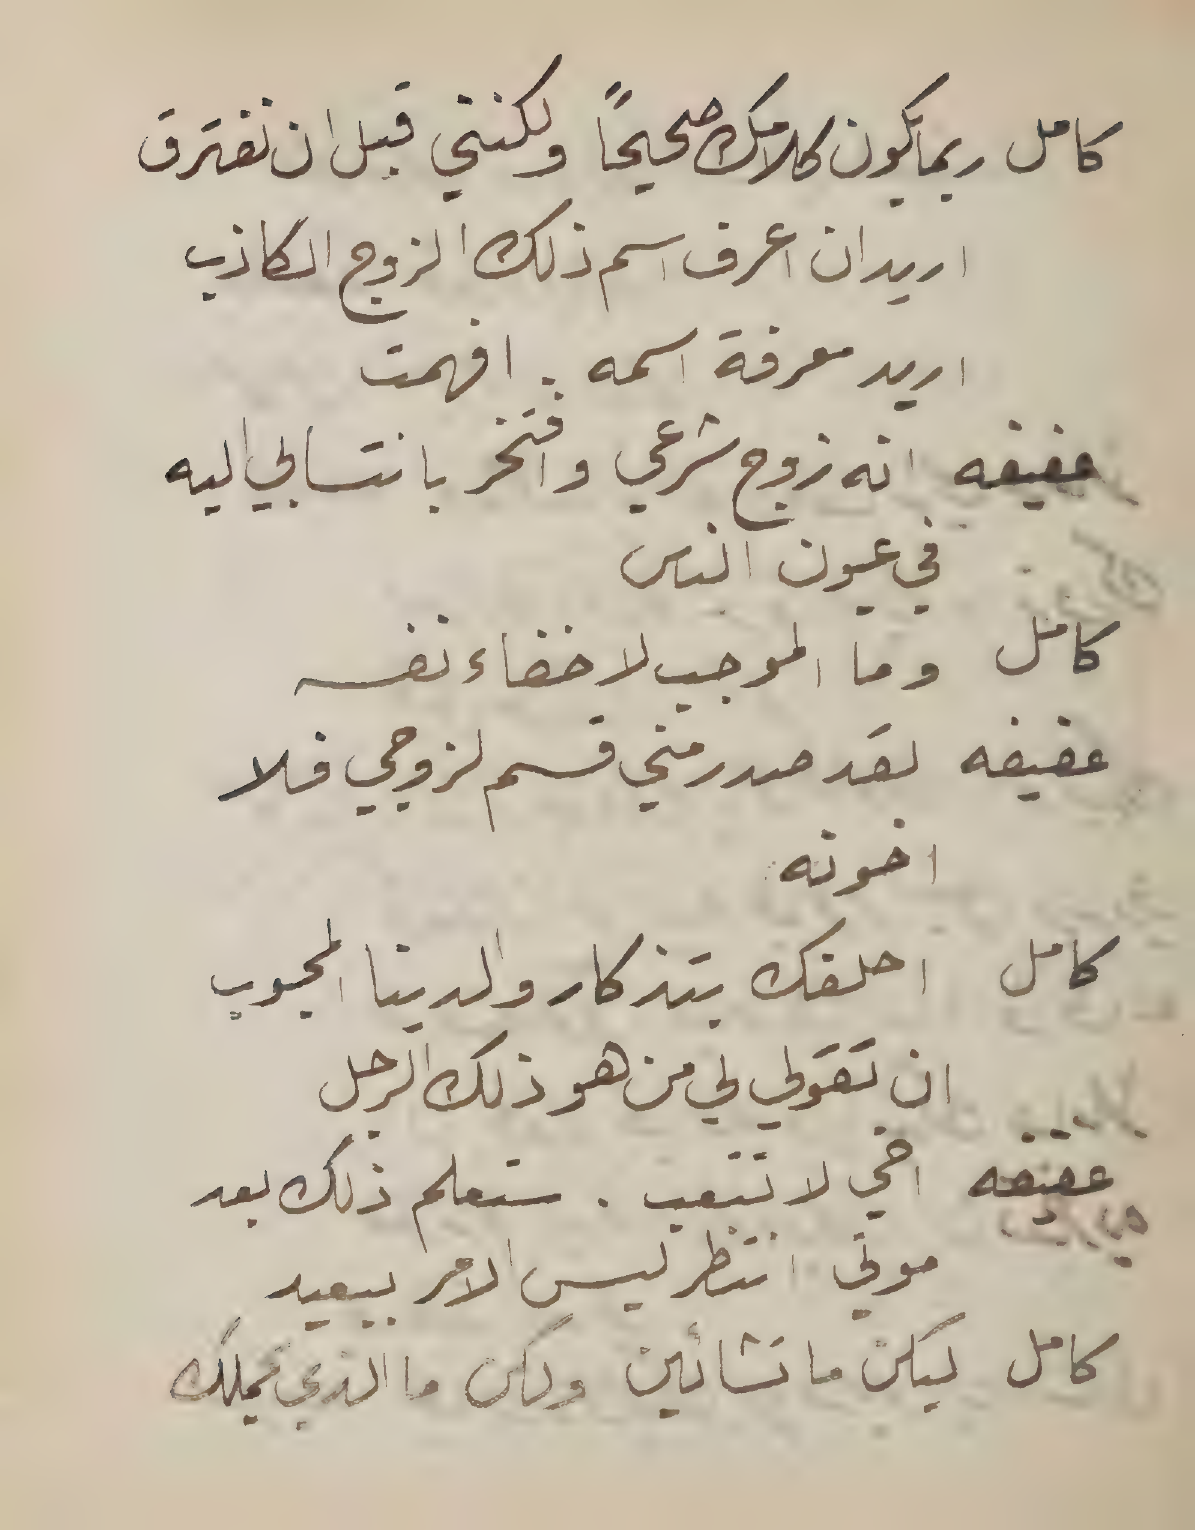 كامل ربما يكون كلامك صحيحًا ولكنني قبل ان نفترق
اريد ان اعرف اسم ذلك الزوج الكاذب
اريد معرفة اسمه . افهمت
عفيفه انه زوج شرعي وافتخر بانتسابي اليه
في عيون الناس
كامل وما الموجب لاخفاء نفسه
عفيفه لقد صدر مني قسم لزوجي فلا
اخونه
كامل احلفك بتذكار والدينا المحبوب
ان تقولي لي من هو ذلك الرجل
عفيفه اخي لا تتعب . ستعلم ذلك بعد
موتي انتظر ليس الامر ببعيد
كامل ليكن ما تشائين ولكن ما الذي يحملك